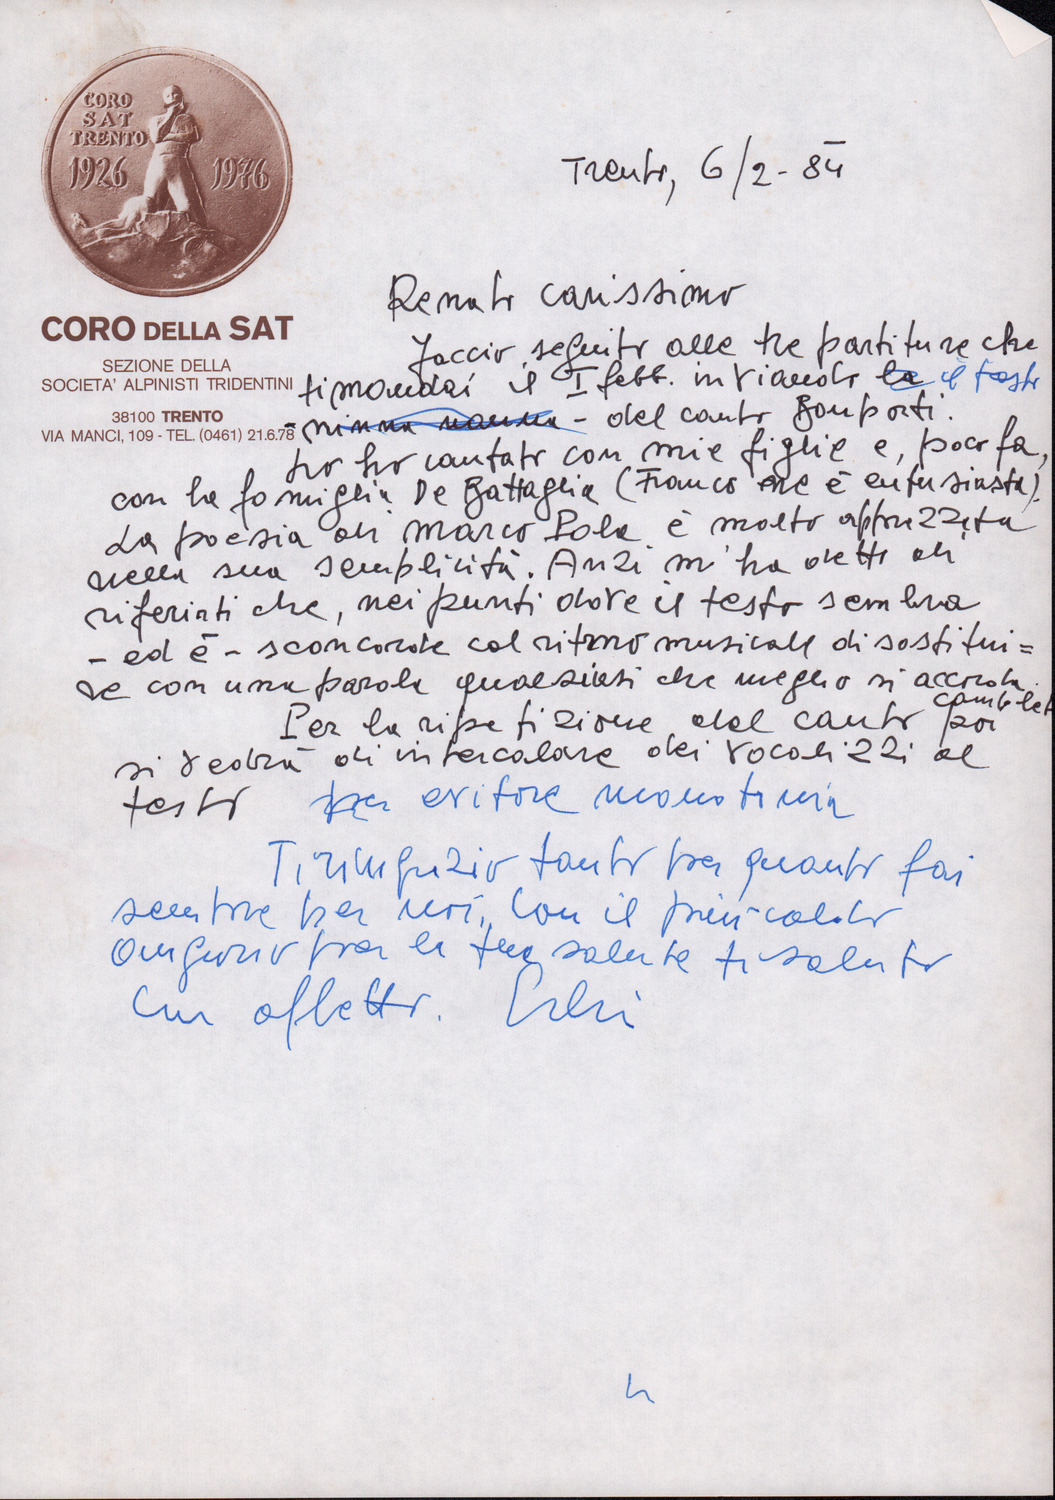 CORO
SAT
TRENTO
1926 1976
CORO DELLA SAT
SEZIONE DELLA
SOCIETA' ALPINISTI TRIDENTINI
38100 TRENTO
VIA MANCI, 109 - TEL. (0461) 21.6.78
Trento, 6/2-84
Renato carissimo
Faccio seguito alle tre partiture che
ti mandai il I febb. inviando la il testo
- ninna nanna - del canto Bonporti.
Lo ho cantato con mie figlie e, poco fa,
con la famiglia De Battaglia (Franco ne è entusiasta).
La poesia di Marco Pola è molto apprezzata
nella sua semplicità. Anzi m'ha detto di
riferirti che, nei punti dove il testo sembra
- ed è - sconcorde col ritmo musicale di sostitui=
re con una parola qualsiasi che meglio si accorda.
Per la ripetizione del canto poi
si vedrà di intercalare dei vocalizzi al
testo per evitare monotonia
Ti ringrazio tanto per quanto fai
sempre per noi. Con il più caldo
augurio per la tua salute ti saluto
con affetto.